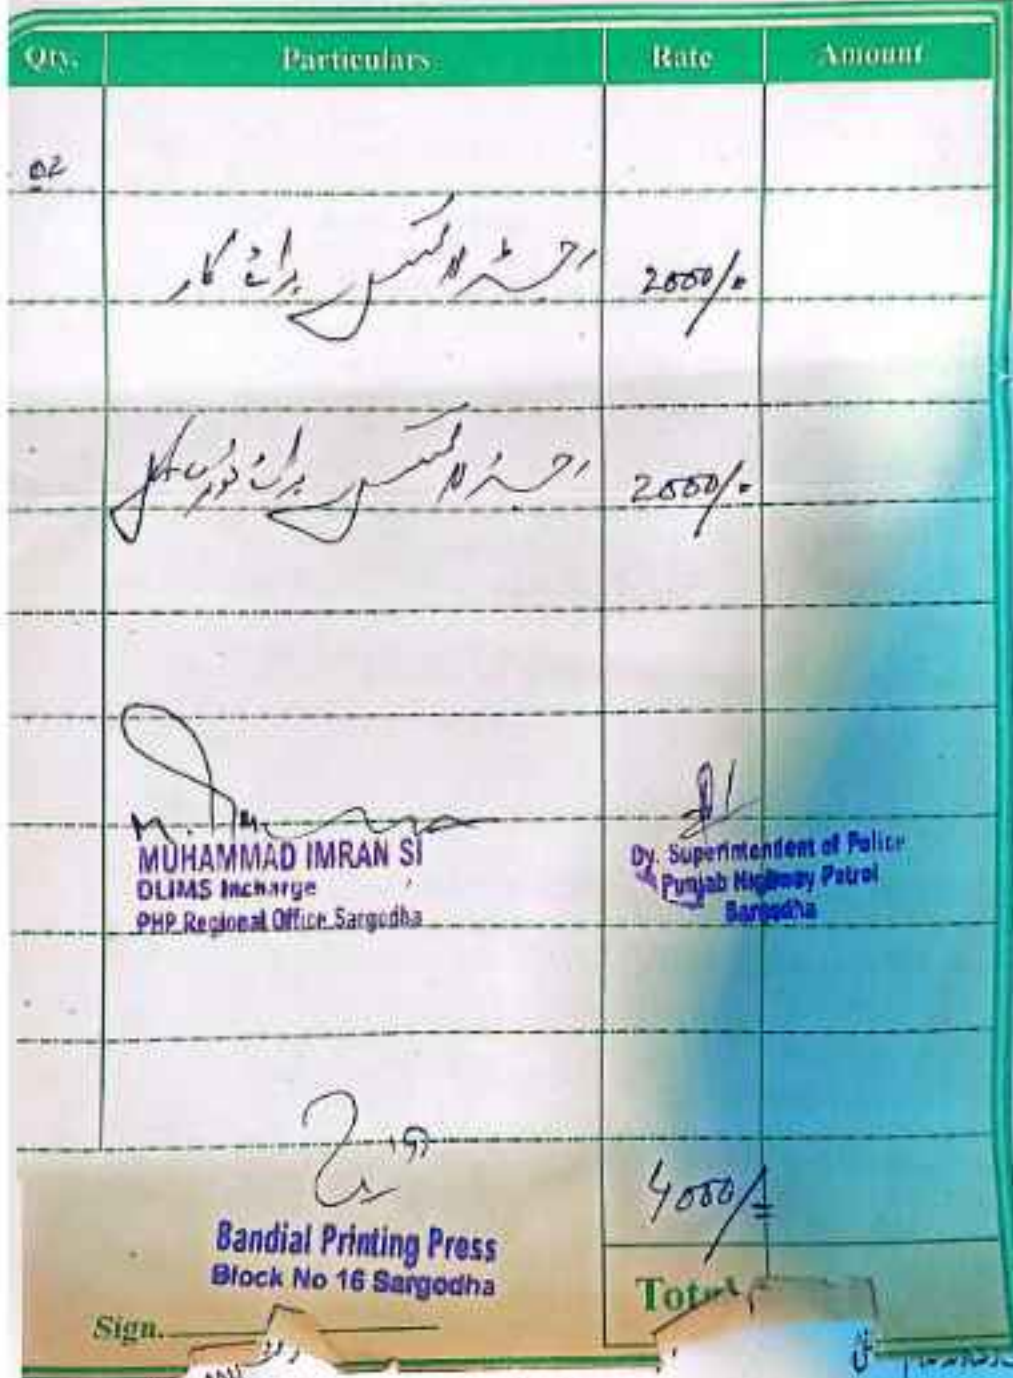 Qty. Particulars Rate Amount
02
رجسٹر لائسنس برائے کار 2000/-
رجسٹر لائسنس برائے موٹر سائیکل 2000/-
MUHAMMAD IMRAN SI
DLIMS Incharge
PHP Regional Office Sargodha
Dy. Superintendent of Police
Punjab Highway Patrol
Sargodha
4000/-
Bandial Printing Press
Block No 16 Sargodha
Total
Sign.